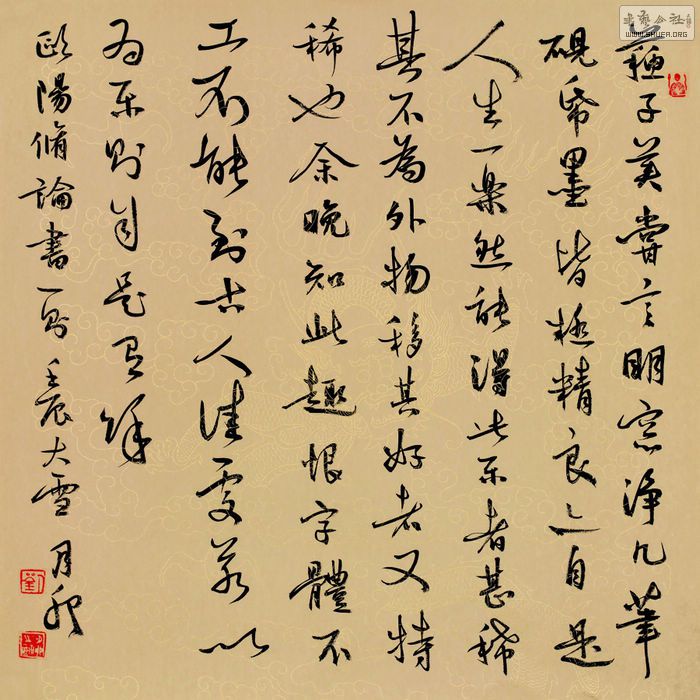 蘇子美嘗言明窓浄几筆
硯帋墨皆極精良亦自是
人生一楽然能得此樂者甚稀
其不為外物移其好者又特
稀也余晚知此趣恨字體不
工不能到古人佳處若以
為樂則自是有餘
歐陽脩論書一則 壬辰大雪 月
WWW.SHUFA.ORG